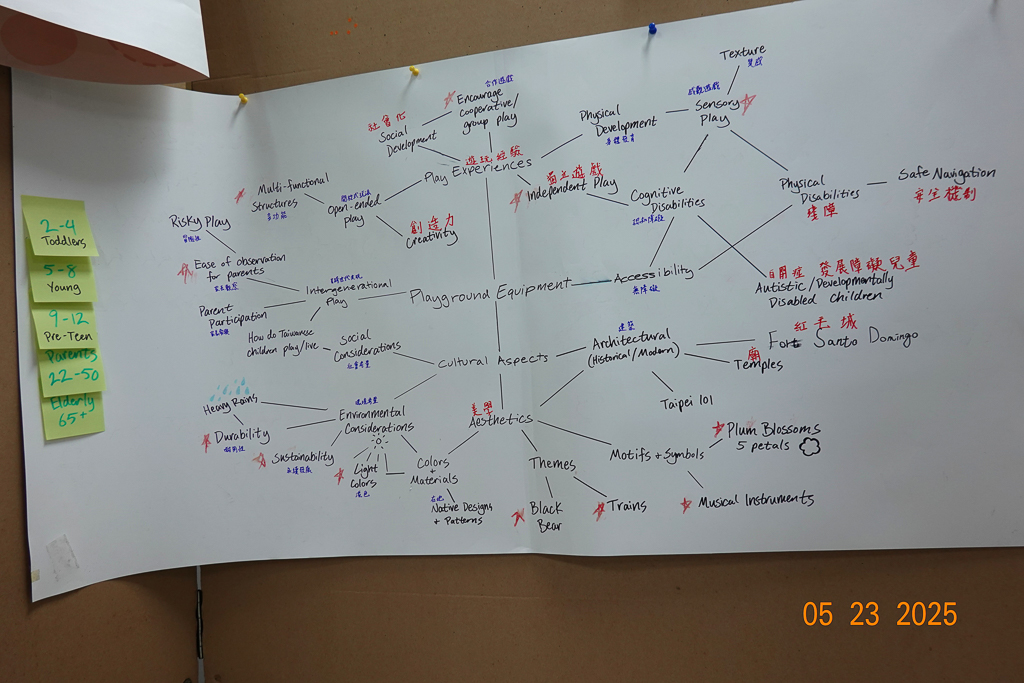 Texture
觸感
合作遊戲
Encourage
cooperative/
group play
社會化
Social
Development
Physical
Development
身體發育
感觀遊戲
Sensory
Play
遊玩經驗
Play Experiences
獨立遊戲
Independent Play
Cognitive
Disabilities
認知障礙
Physical
Disabilities
殘障
Safe Navigation
Multi-functional
Structures
多功能
Open-ended
Play
創造力
Creativity
Risky Play
冒險性
Ease of observation
for parents
Intergenerational
Play
Parent
Participation
How do Taiwanese
children play/live
Playground Equipment
Accessibility
無障礙
自閉症 發展障礙兒童
Autistic/Developmentally
Disabled children
Social
Considerations
社會考量
Cultural Aspects
建築
Architectural
(Historical/Modern)
紅毛城
Fort Santo Domingo
廟
Temples
Taipei 101
Heavy Rains
Durability
耐用性
環境考量
Environmental
Considerations
Sustainability
永續發展
Light
Colors
淺色
Colors
+
Materials
Native Designs
+ Patterns
美學
Aesthetics
Themes
Black
Bear
Trains
Motifs + Symbols
Plum Blossoms
5 petals
Musical Instruments
2-4
Toddlers
5-8
Young
9-12
Pre-Teen
Parents
22-50
Elderly
65+
05 23 2025